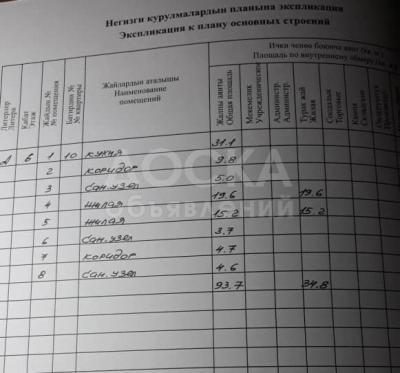 Негизги курулмалардын планына экспликация
Экспликация к плану основных строений
Ички ченөө боюнча аянт (кв. м.)
Площадь по внутреннему обмеру (кв. м.)
Литерлер
Литера
Кабат
Этаж
Жайдын №
№ помещения
Батирдин №
№ квартиры
Жайлардын аталышы
Наименование
помещений
Жалпы аянты
Общая площадь
Мекемелик
Учрежденческий
Администр.
Администр.
Турак жай
Жилая
Соодалык
Торговые
А 6 1 10 кухня 31.1
2 коридор 9.8
3 сан.узел 5.0
4 жилая 19.6 19.6
5 жилая 15.2 15.2
6 сан.узел 3.7
7 коридор 4.7
8 сан.узел 4.6
93.7 34.8
ДОСКА
объявлений